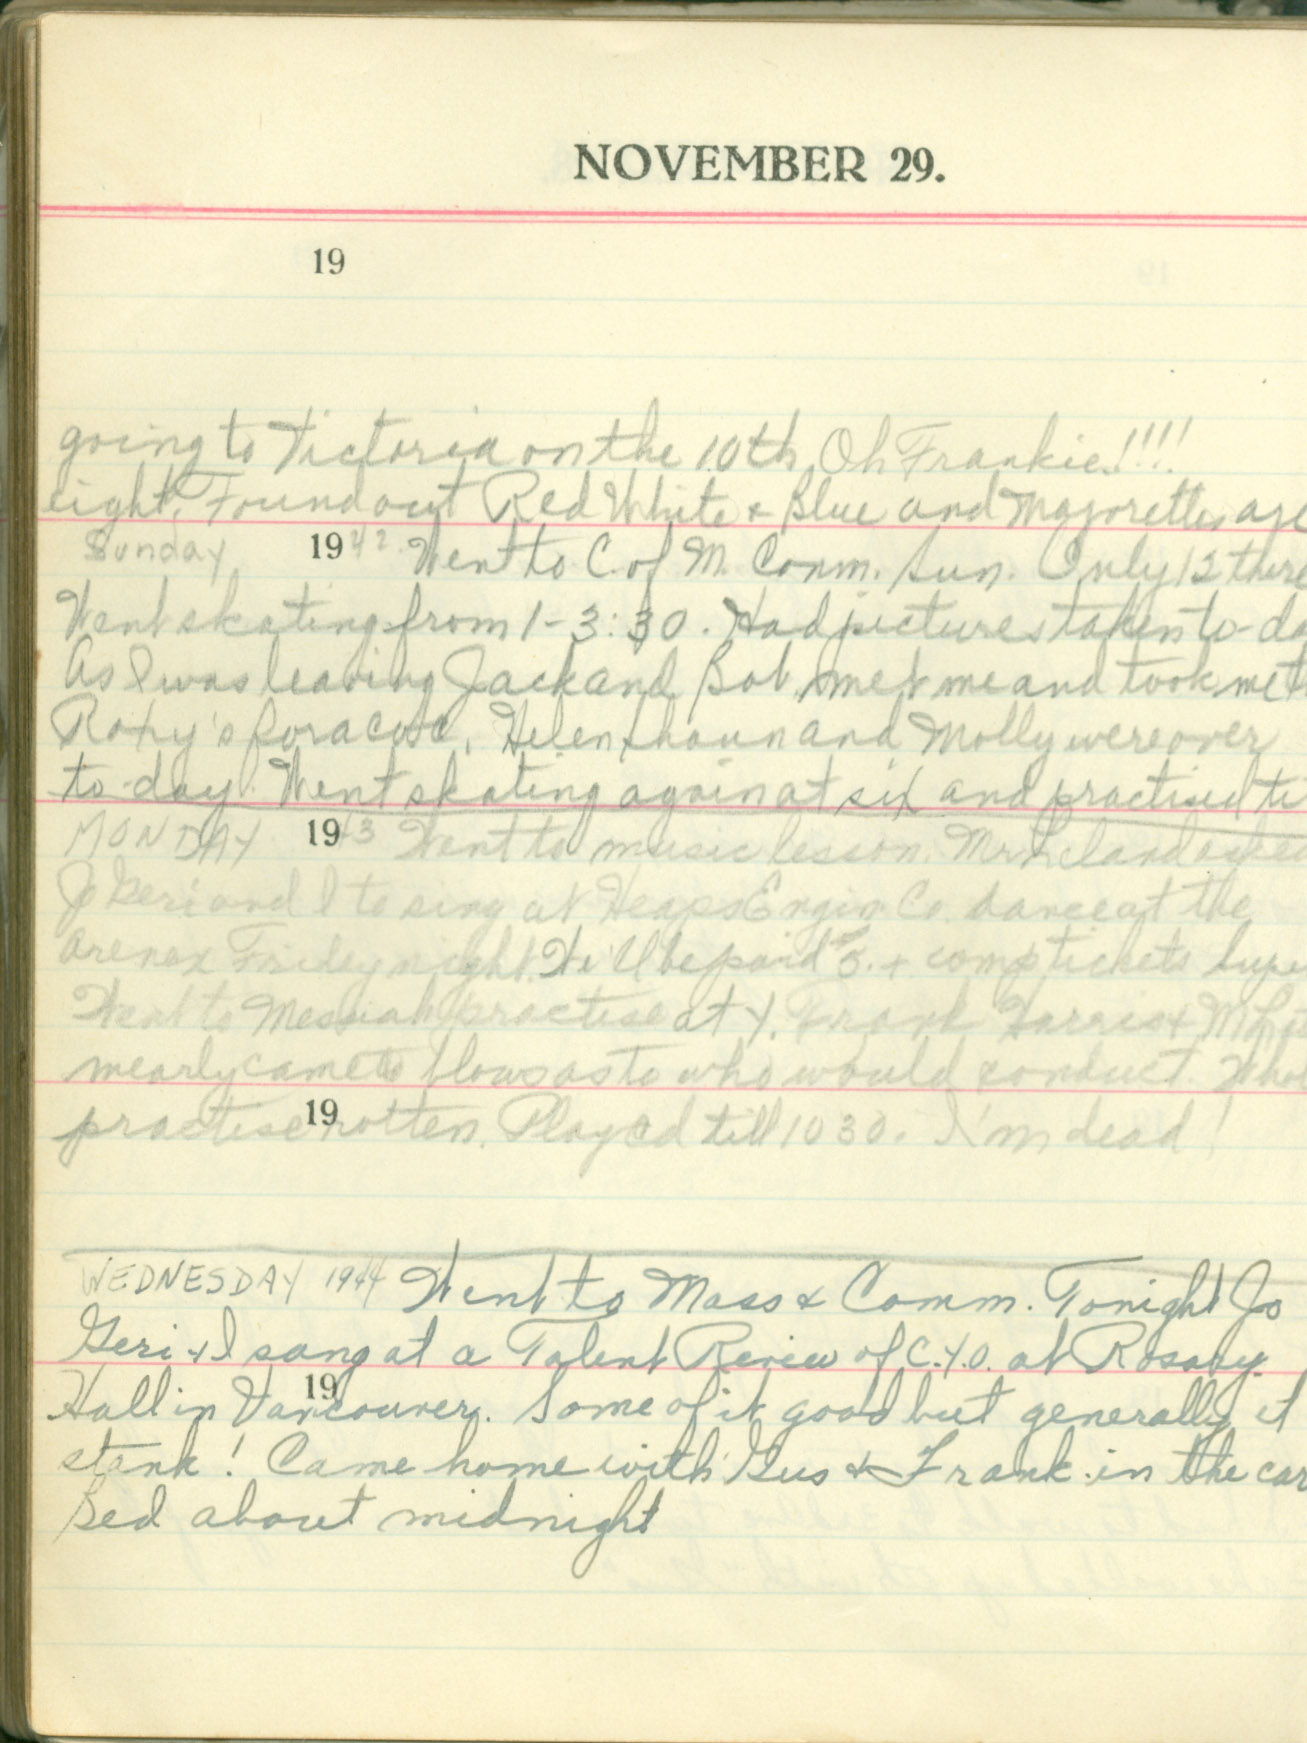 NOVEMBER 29.
19
going to Victoria on the 10th. Oh Frankie!!!!
eight. Found out Red White & Blue and Majorettes are
Sunday 1942. Went to C. of M. Comm. Sun. Only 12 there
Went skating from 1-3:30. Had pictures taken to-da
As I was leaving Jack and Bob met me and took me t
Roxy's for a coke. Helen and Molly were over
to-day. Went skating again at six and practised ti
MONDAY 1943 Went to music lesson. Mr. asked
Jo Geri and I to sing at Heaps Engin Co. dance at the
arenex Friday night. We'll be paid $5. + comp tickets supe
Went to Messiah practise at Y. Frank Harris +
nearly came to blows as to who would conduct. Whol
19
practise rotten. Played till 10 30. I'm dead!
WEDNESDAY 1944 Went to Mass & Comm. Tonight Jo
Geri + I sang at a Talent Review of C.Y.O. at Rosary
19
Hall in Vancouver. Some of it good but generally it
stank! Came home with Gus & Frank in the car
Bed about midnight